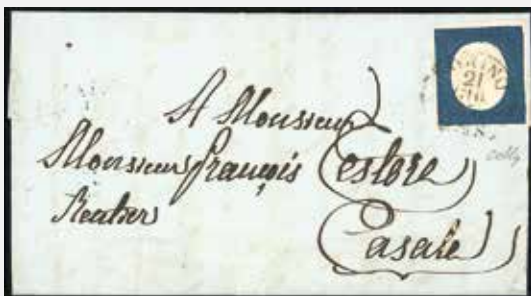 TORINO
21
A Monsieur
Monsieur François Cestore
Casale